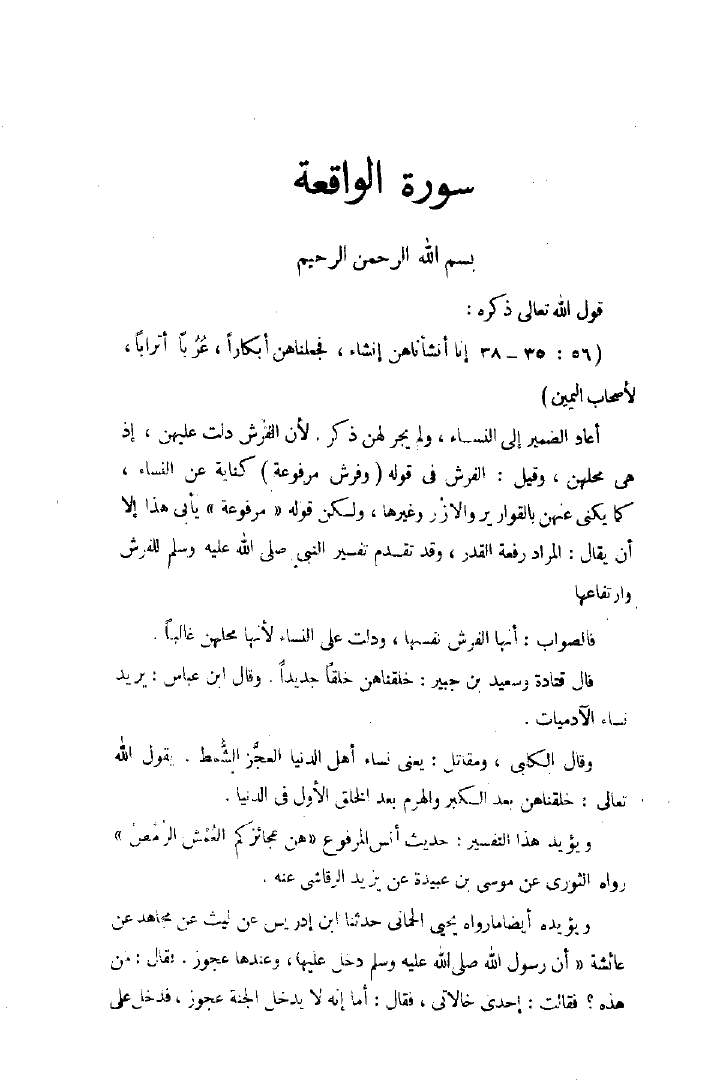 سورة الواقعة
بسم الله الرحمن الرحيم
قول الله تعالى ذكره :
( ٥٦ : ٣٥ – ٣٨ إنا أنشأناهن إنشاء ، فجعلناهن أبكاراً ، عُرُباً أتراباً ،
لأصحاب اليمين )
أعاد الضمير إلى النساء ، ولم يجر لهن ذكر . لأن الفُرش دلت عليهن ، إذ
هى محلهن ، وقيل : الفرش فى قوله ( وفرش مرفوعة ) كناية عن النساء ،
كما يكنى عنهن بالقوارير والازُر وغيرها ، ولكن قوله « مرفوعة » يأبى هذا إلا
أن يقال : المراد رفعة القدر ، وقد تقدم تفسير النبى صلى الله عليه وسلم للفرش
وارتفاعها
فالصواب : أنها الفرش نفسها ، ودلت على النساء لأنها محلهن غالباً .
قال قتادة وسعيد بن جبير : خلقناهن خلقاً جديداً . وقال ابن عباس : يريد
نساء الآدميات .
وقال الكلبى ، ومقاتل : يعنى نساء أهل الدنيا العجَّز الشُّمط . يقول الله
تعالى : خلقناهن بعد الكبر والهرم بعد الخلق الأول فى الدنيا .
ويؤيد هذا التفسير : حديث أنس المرفوع « هن عجائزكم العُمْش الرُّمْص »
رواه الثورى عن موسى بن عبيدة عن يزيد الرقاشى عنه .
ويؤيده أيضا مارواه يحيى الحمانى حدثنا ابن إدريس عن ليث عن مجاهد عن
عائشة « أن رسول الله صلى الله عليه وسلم دخل عليها ، وعندها عجوز . فقال : من
هذه ؟ فقالت : إحدى خالاتى ، فقال : أما إنه لا يدخل الجنة عجوز ، فدخل على